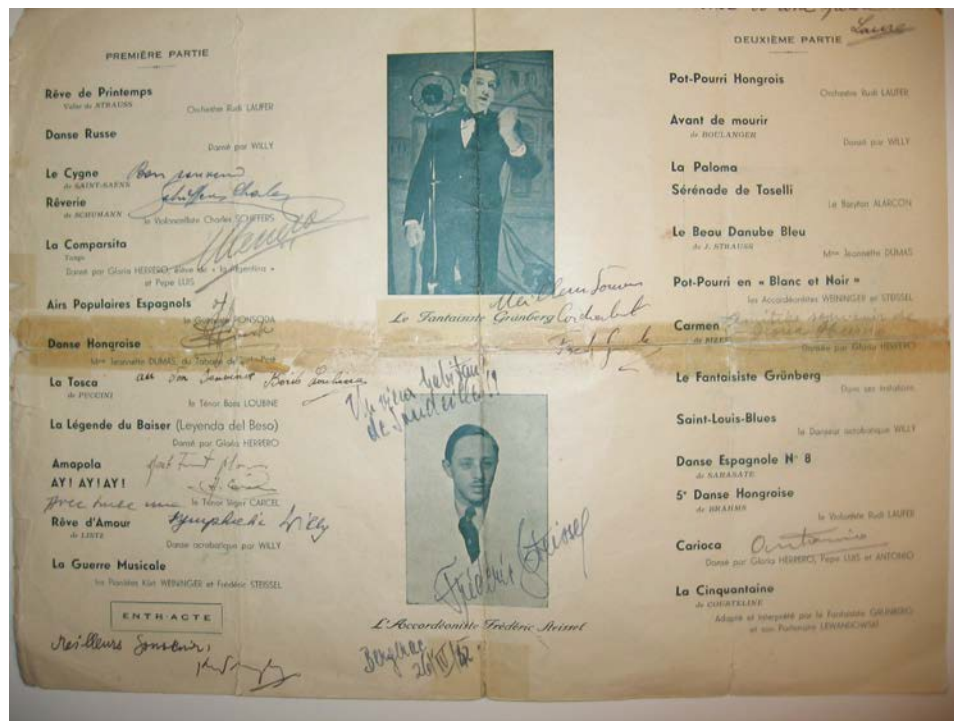 PREMIÈRE PARTIE
Rêve de Printemps
Valse de STRAUSS
Orchestre Rudi LAUFER
Danse Russe
Dansé par WILLY
Le Cygne
de SAINT-SAËNS
Bon souvenir
Rêverie
de SCHUMANN
le Violoncelliste Charles SCHIFFERS
La Comparsita
Tango
Dansé par Gloria HERRERO, élève de « la Argentina »
et Pepe LUIS
Airs Populaires Espagnols
le Guitariste RONSODA
Danse Hongroise
Mme Jeannette DUMAS, du Tabarin de
La Tosca
de PUCCINI
Boris Loubine
le Ténor Boris LOUBINE
La Légende du Baiser (Leyenda del Beso)
Dansé par Gloria HERRERO
Amapola
AY! AY! AY!
le Ténor Léger CARCEL
Avec toute ma
sympathie Willy
Rêve d'Amour
de LISTZ
Danse acrobatique par WILLY
La Guerre Musicale
les Pianistes Kurt WEININGER et Frédéric STEISSEL
ENTR'ACTE
Meilleurs Souvenirs
Le Fantaisiste Grünberg
Meilleurs Souvenirs
Un vieux habitant
de
Frédéric Steissel
L'Accordéoniste Frédéric Steissel
Bergerac
Laure
DEUXIÈME PARTIE
Pot-Pourri Hongrois
Orchestre Rudi LAUFER
Avant de mourir
de BOULANGER
Dansé par WILLY
La Paloma
Sérénade de Toselli
Le Baryton ALARCON
Le Beau Danube Bleu
de J. STRAUSS
Mme Jeannette DUMAS
Pot-Pourri en « Blanc et Noir »
les Accordéonistes WEININGER et STEISSEL
Carmen
de BIZET
souvenir de
Dansée par Gloria HERRERO
Le Fantaisiste Grünberg
Dans ses imitations
Saint-Louis-Blues
le Danseur acrobatique WILLY
Danse Espagnole N° 8
de SARASATE
5e Danse Hongroise
de BRAHMS
le Violoniste Rudi LAUFER
Carioca
Antonio
Dansé par Gloria HERRERO, Pepe LUIS et ANTONIO
La Cinquantaine
de COURTELINE
Adapté et interprété par le Fantaisiste GRÜNBERG
et son Partenaire LEWANDOWSKI